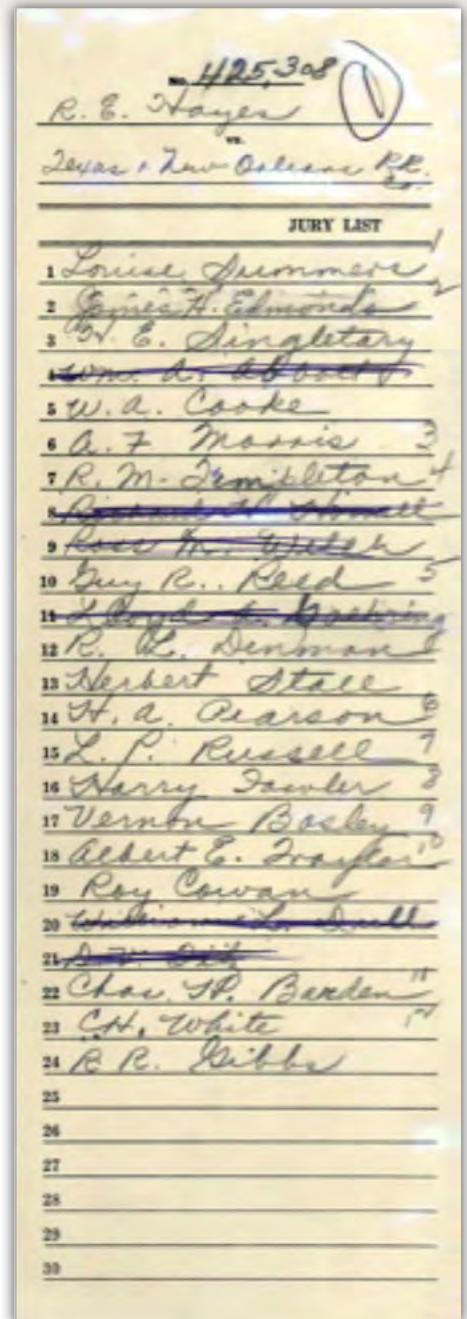 No. 425,308
1
R. E. Hayes
vs.
Texas & New Orleans RR.
Co.
JURY LIST
1 Louise Summers 1
2 H. Edmonds 2
3 E. Singletary
4 Wm. A. Abbott
5 W. A. Cooke
6 A. F. Morris 3
7 R. M. Templeton 4
8
9 Ross M. Welch
10 Guy R. Reed 5
11 Lloyd Goehring
12 R. L. Denman
13 Herbert Stall
14 H. A. Pearson 6
15 L. P. Russell 7
16 Harry Fowler 8
17 Vernon Bosley 9
18 Albert E. Traylor 10
19 Roy Cowan
20
21
22 Chas. Barden 11
23 C.H. White 12
24 R R. Gibbs
25
26
27
28
29
30